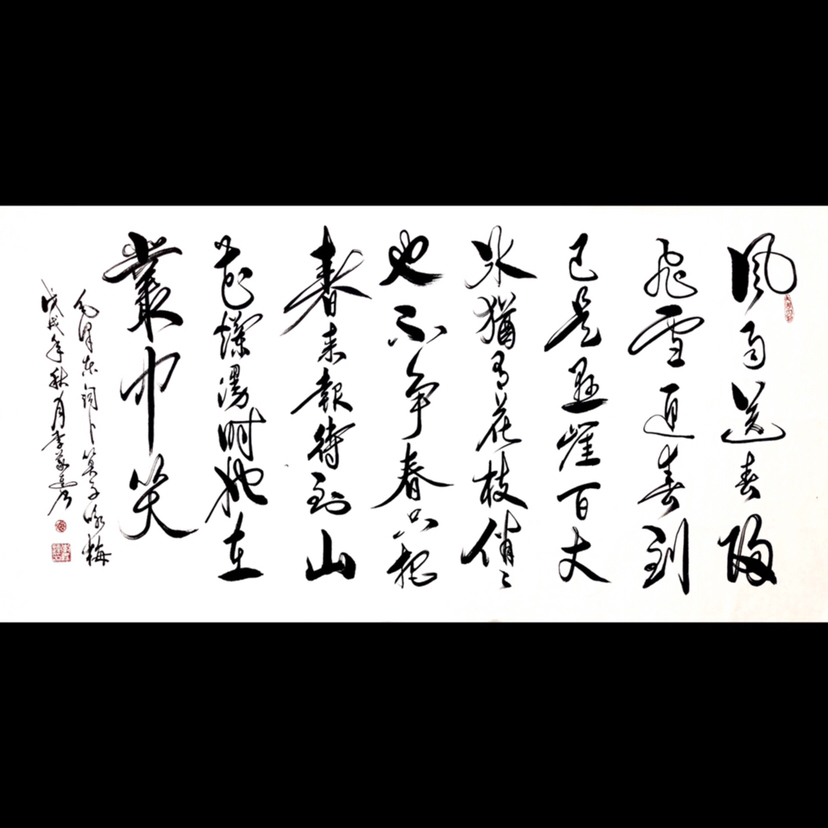 风雨送春归
飞雪迎春到
已是悬崖百丈
冰犹有花枝俏俏
也不争春只把
春来报待到山
花烂漫时她在
丛中笑
毛泽东词卜算子咏梅
戊戌年秋月李